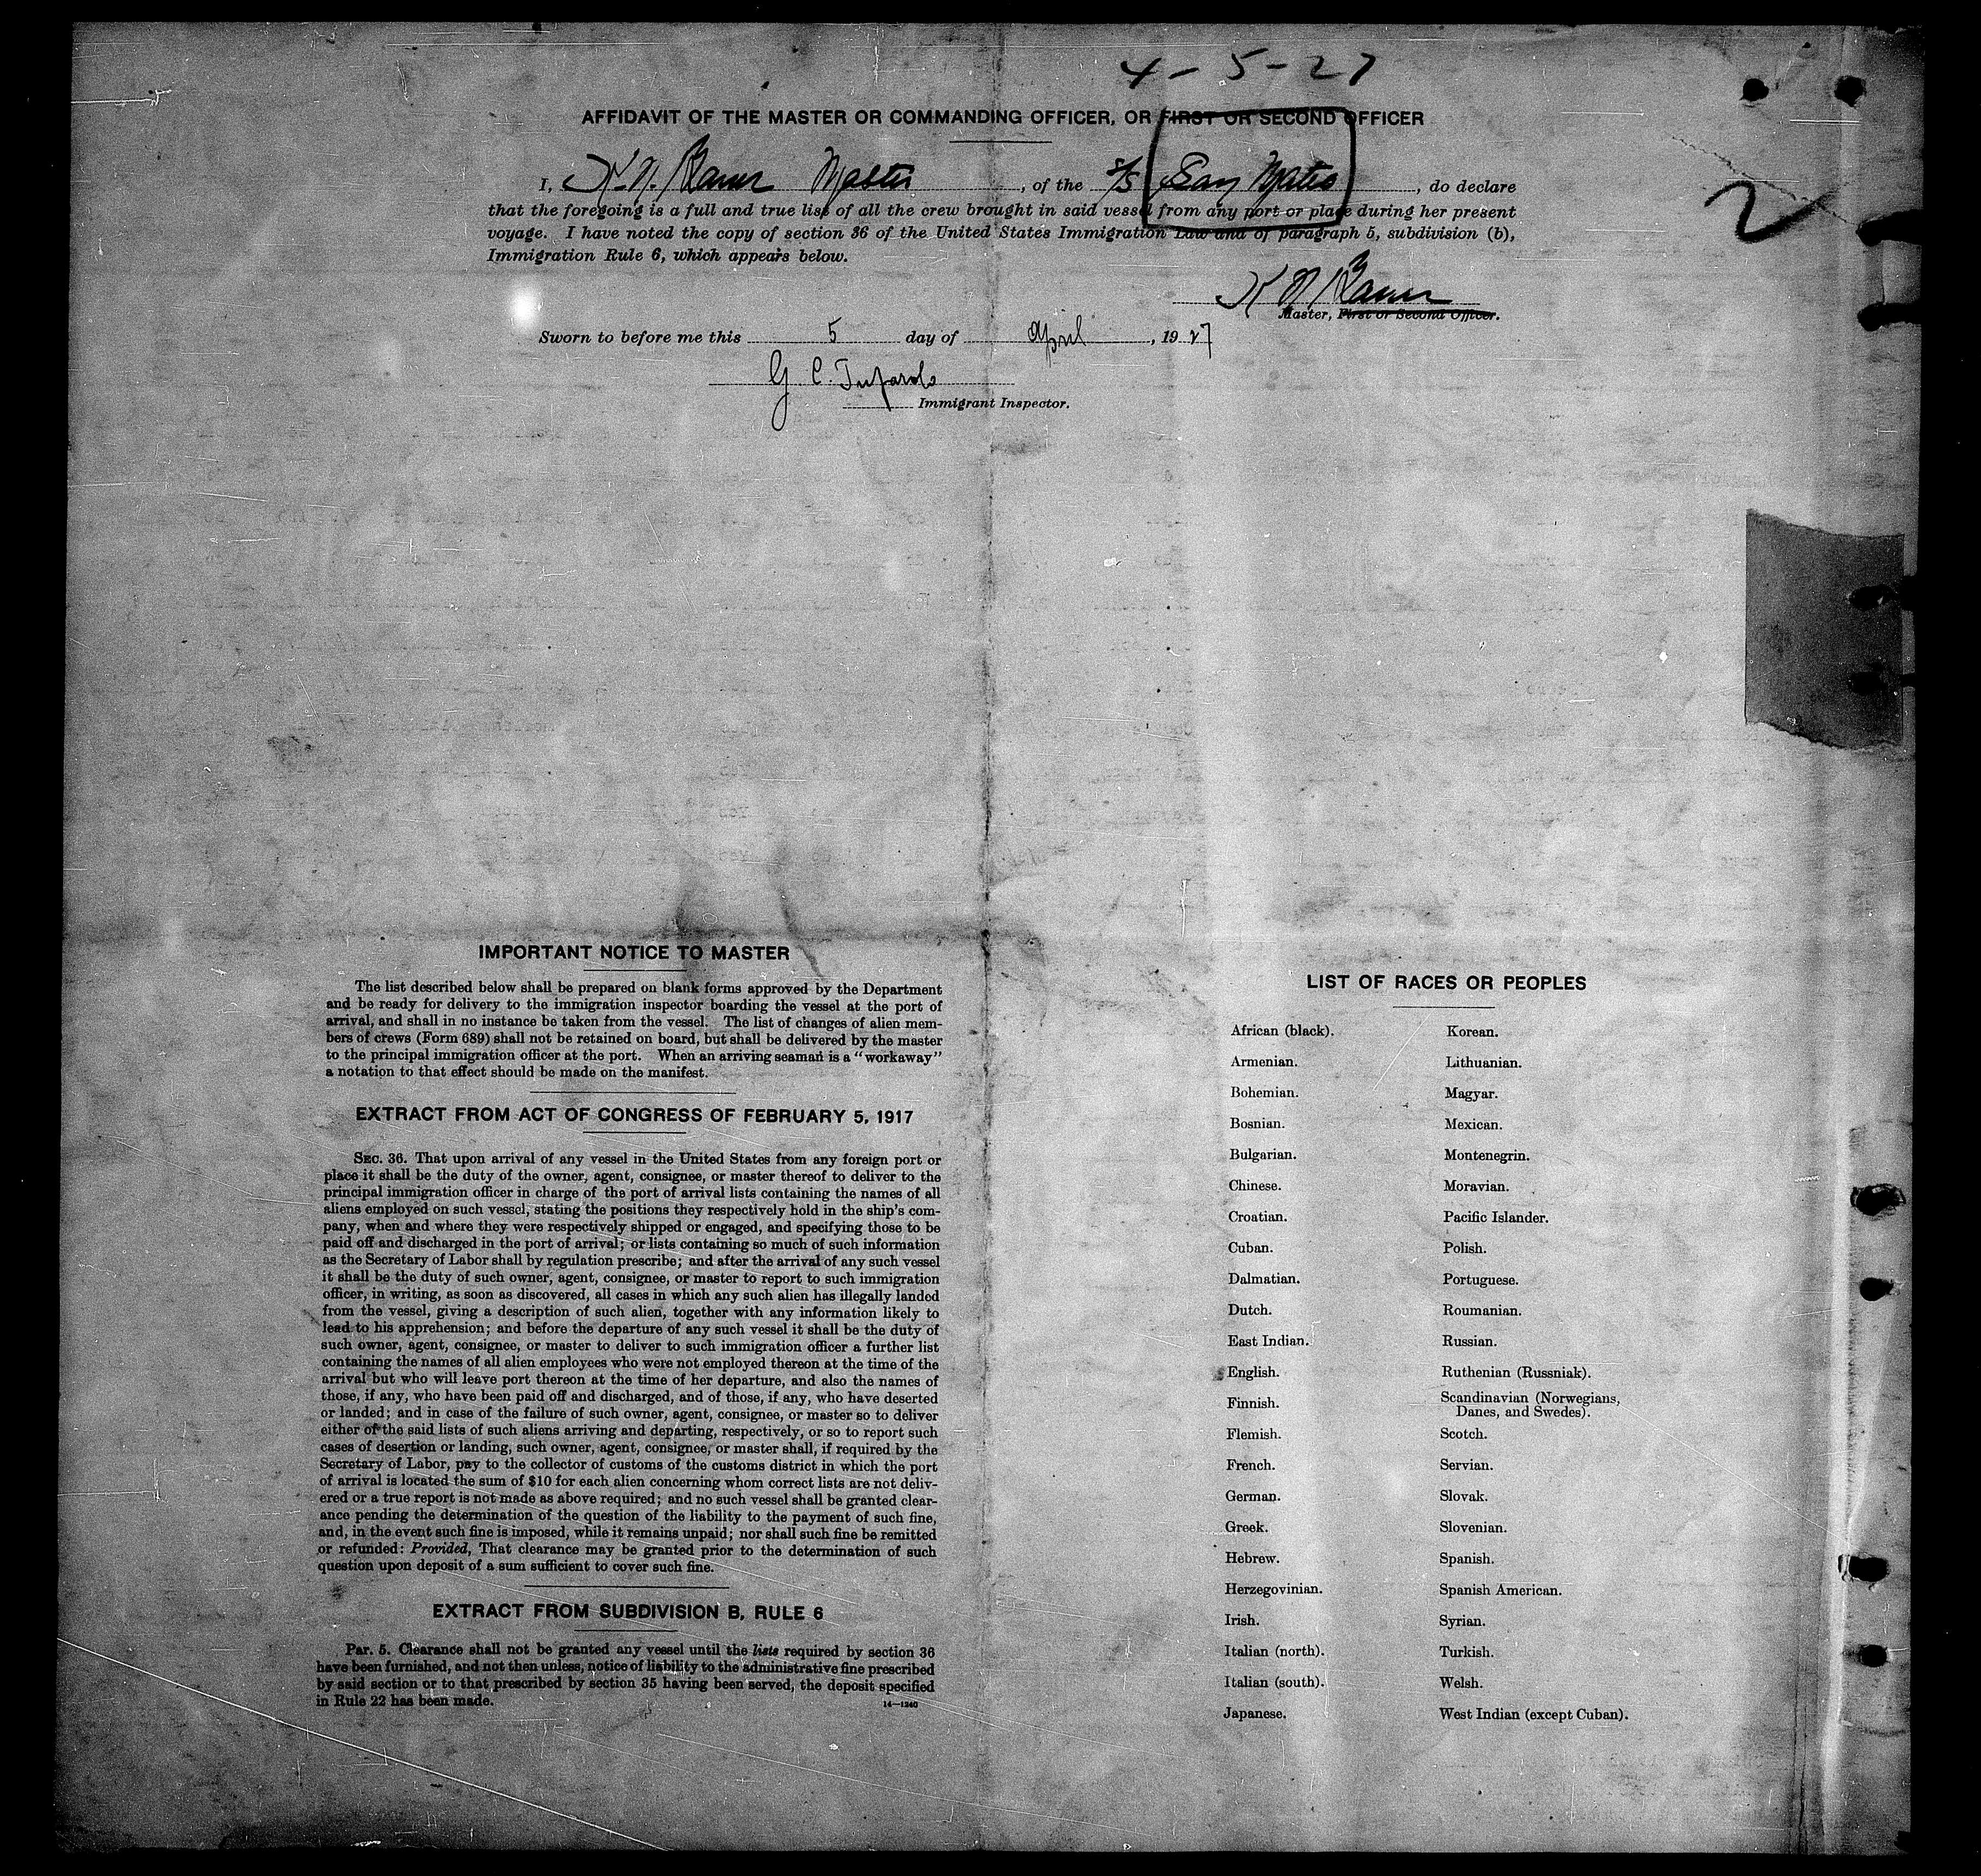 4-5-27
AFFIDAVIT OF THE MASTER OR COMMANDING OFFICER, OR FIRST OR SECOND OFFICER
I, Master, of the S/S San Mateo, do declare
that the foregoing is a full and true list of all the crew brought in said vessel from any port or place during her present
voyage. I have noted the copy of section 36 of the United States Immigration Law and of paragraph 5, subdivision (b),
Immigration Rule 6, which appears below.
2
Master, First or Second Officer.
Sworn to before me this 5 day of April, 1927
G. C.
Immigrant Inspector.
IMPORTANT NOTICE TO MASTER
The list described below shall be prepared on blank forms approved by the Department
and be ready for delivery to the immigration inspector boarding the vessel at the port of
arrival, and shall in no instance be taken from the vessel. The list of changes of alien mem-
bers of crews (Form 689) shall not be retained on board, but shall be delivered by the master
to the principal immigration officer at the port. When an arriving seaman is a "workaway"
a notation to that effect should be made on the manifest.
EXTRACT FROM ACT OF CONGRESS OF FEBRUARY 5, 1917
SEC. 36. That upon arrival of any vessel in the United States from any foreign port or
place it shall be the duty of the owner, agent, consignee, or master thereof to deliver to the
principal immigration officer in charge of the port of arrival lists containing the names of all
aliens employed on such vessel, stating the positions they respectively hold in the ship's com-
pany, when and where they were respectively shipped or engaged, and specifying those to be
paid off and discharged in the port of arrival; or lists containing so much of such information
as the Secretary of Labor shall by regulation prescribe; and after the arrival of any such vessel
it shall be the duty of such owner, agent, consignee, or master to report to such immigration
officer, in writing, as soon as discovered, all cases in which any such alien has illegally landed
from the vessel, giving a description of such alien, together with any information likely to
lead to his apprehension; and before the departure of any such vessel it shall be the duty of
such owner, agent, consignee, or master to deliver to such immigration officer a further list
containing the names of all alien employees who were not employed thereon at the time of the
arrival but who will leave port thereon at the time of her departure, and also the names of
those, if any, who have been paid off and discharged, and of those, if any, who have deserted
or landed; and in case of the failure of such owner, agent, consignee, or master so to deliver
either of the said lists of such aliens arriving and departing, respectively, or so to report such
cases of desertion or landing, such owner, agent, consignee, or master shall, if required by the
Secretary of Labor, pay to the collector of customs of the customs district in which the port
of arrival is located the sum of $10 for each alien concerning whom correct lists are not deliv-
ered or a true report is not made as above required; and no such vessel shall be granted clear-
ance pending the determination of the question of the liability to the payment of such fine,
and, in the event such fine is imposed, while it remains unpaid; nor shall such fine be remitted
or refunded: Provided, That clearance may be granted prior to the determination of such
question upon deposit of a sum sufficient to cover such fine.
EXTRACT FROM SUBDIVISION B, RULE 6
Par. 5. Clearance shall not be granted any vessel until the lists required by section 36
have been furnished, and not then unless, notice of liability to the administrative fine prescribed
by said section or to that prescribed by section 35 having been served, the deposit specified
in Rule 22 has been made.
14—1240
LIST OF RACES OR PEOPLES
African (black).
Armenian.
Bohemian.
Bosnian.
Bulgarian.
Chinese.
Croatian.
Cuban.
Dalmatian.
Dutch.
East Indian.
English.
Finnish.
Flemish.
French.
German.
Greek.
Hebrew.
Herzegovinian.
Irish.
Italian (north).
Italian (south).
Japanese.
Korean.
Lithuanian.
Magyar.
Mexican.
Montenegrin.
Moravian.
Pacific Islander.
Polish.
Portuguese.
Roumanian.
Russian.
Ruthenian (Russniak).
Scandinavian (Norwegians,
Danes, and Swedes).
Scotch.
Servian.
Slovak.
Slovenian.
Spanish.
Spanish American.
Syrian.
Turkish.
Welsh.
West Indian (except Cuban).